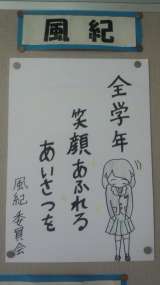 風紀
全学年
笑顔あふれる
あいさつを
風紀委員会